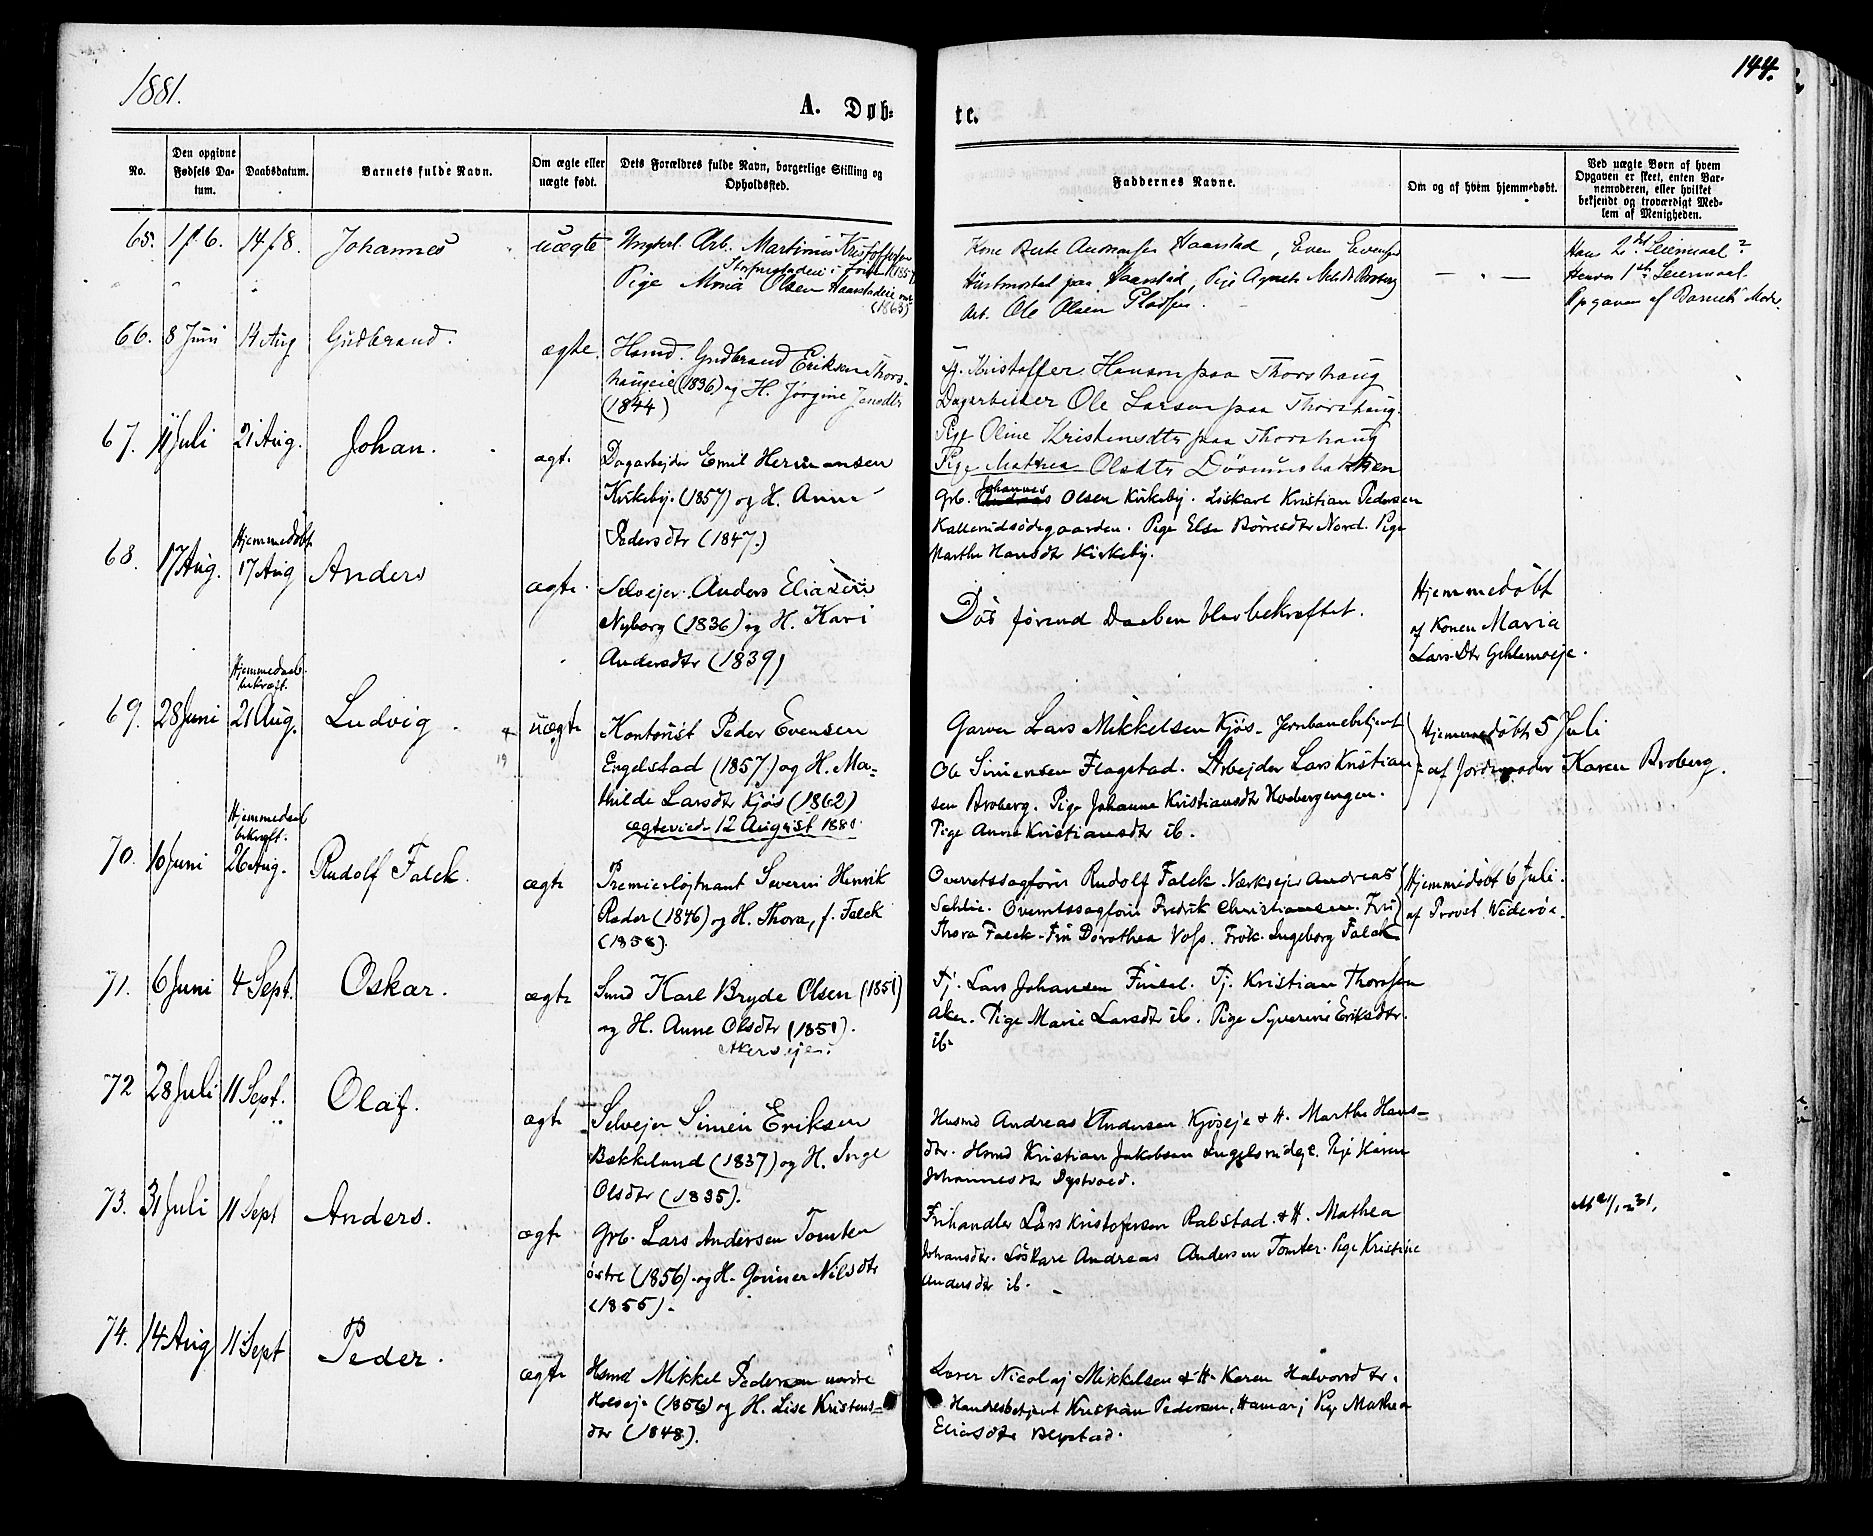 1881.
144.
A. Døb-
te.
No.
Den opgivne Fødsels Da-tum.
Daabsdatum.
Barnets fulde Navn.
Om ægte eller uægte født.
Dets Forældres fulde Navn, borgerlige Stilling og Opholdssted.
Faddernes Navne.
Om og af hvem hjemmedøbt.
Ved uægte Børn af hvem Opgaven er skeet, enten Bar-nemoderen, eller hvilket bekjendt og troværdigt Med-lem af Menigheden.
65. 1/6. 14/8. Johannes uægte
Ungkarl Arb. Martinius Kristoffersen
(1857)
Pige Olsen Haarstadeie
(1863)
Kone Berte Haarstad, Even Evensen
Husmostad paa Haarstad, Pige Agnete Broberg
Arb. Ole Olsen Pladsen
Hans 2det Leiermaal
Hendes 1ste Leiermaal.
Opgaven af Barnets Moder.
66. 8 Juni 14 Aug Gudbrand. ægte.
Hsmd. Gudbrand Eriksen Thors-
haugeie (1836) og H. Jørgine Jensdtr
(1844)
Tj. Kristoffer Hansen paa Thorshaug
Dagarbeider Ole Larsen paa Thorshaug.
Pige Oline Kristensdtr paa Thorshaug
Pige Mathea Olsdtr
67. 11 Juli 21 Aug. Johan. ægt.
Dagarbejder Emil Hermansen
Kirkeby. (1857) og H. Anne
Pedersdtr (1847.)
Johannes
Grb. Olsen Kirkeby. Løskarl Kristian Pedersen
Kallerudsødegaarden. Pige Else Børresdtr Nord. Pige
Marthe Hansdtr Kirkeby.
68. 17 Aug. Hjemmedøbt 17 Aug Anders ægte.
Selvejer. Anders Eliasen
Nyborg (1836) og H. Kari
Andersdtr (1839)
Død førend Daaben blev bekræftet.
Hjemmedøbt
af Konen Maria
Larsdtr
69. 28 Juni Hjemmedaab bekræft. 21 Aug. Ludvig uægte
Kontorist Peder Evensen
Engelstad (1857) og H. Ma-
thilde Larsdtr Kjøs (1862)
ægteviede 12 August 1881.
Garver Lars Mikkelsen Kjøs. Jernbanebetjent
Ole Simensen Flagstad. Arbejder Lars Kristian-
sen Broberg. Pige Johanne Kristiansdtr Hoebergengen.
Pige Anne Kristiansdtr ib.
Hjemmedøbt 5 Juli
af Jordmoder Karen Broberg.
70. 10 Juni Hjemmedaab bekræft. 26 Aug. Rudolf Falck. ægte
Premierløjtnant Severin Henrik
Rader (1846) og H. Thora, f. Falck
(1858).
Overretssagfører Rudolf Falck. Værksejer Andreas
Schlie. Overretssagfører Fredrik Christiansen. Fru
Thora Falck. Fru Dorothea Voss. Frøk. Ingeborg Falck
Hjemmedøbt 6 Juli.
af Provst Widerøe.
71. 6 Juni 4 Sept. Oskar. ægte
Smed Karl Bryde Olsen (1851)
og H. Anne Olsdtr (1851).
Akerseje.
Tj. Lars Johansen Finsal. Tj. Kristian Thorsen
Aker. Pige Marie Larsdtr ib. Pige Syverine Eriksdtr.
ib.
72 28 Juli 11 Sept. Olaf. ægte
Selvejer Simen Eriksen
Bækkelund (1837) og H. Inge
Olsdtr (1835).
Husmd Andreas Andersen Kjøseje & H. Marthe Hans-
dtr. Hsmd Kristian Jakobsen Pige Karen
Johannesdtr Dystvold.
73. 31 Juli 11 Sept Anders. ægte
Grb. Lars Andersen Tomter
østre (1856) og H. Gunner Nilsdtr
(1855).
Frihandler Lars Kristofersen Ralstad & H. Mathea
Johansdtr. Løskarl Andreas Andersen Tomter. Pige Kristine
Andersdtr ib.
74. 14 Aug 11 Sept Peder. ægte
Hsmd Mikkel Pedersen nordre
Holseje (1856) og H. Lise Kristens-
dtr (1848).
Lærer Nicolaj Mikkelsen & H. Karen Halvorsdtr.
Handelsbetjent Kristian Pedersen, Hamar; Pige Mathea
Eliasdtr